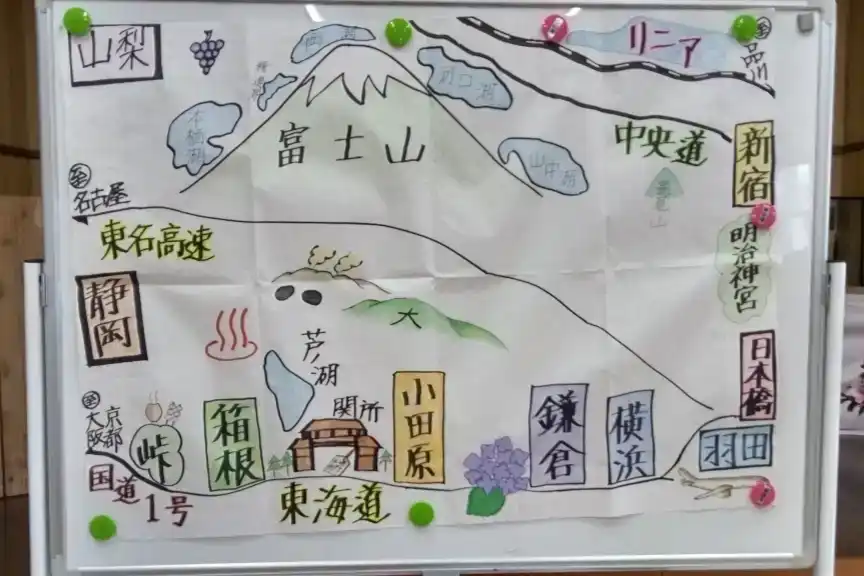 山梨
西湖
リニア
至
品川
精進湖
河口湖
本栖湖
富士山
山中湖
中央道
新宿
高尾山
至
名古屋
東名高速
明治神宮
静岡
大
芦ノ湖
日本橋
至
京都
大阪
峠
箱根
関所
小田原
鎌倉
横浜
羽田
国道
1号
東海道